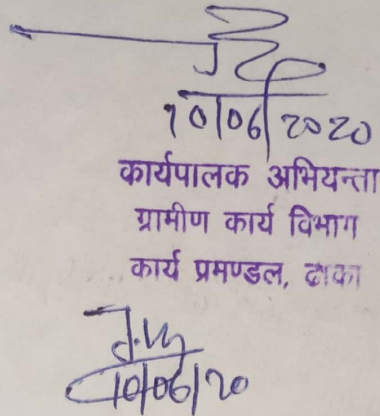 10/06/2020
कार्यपालक अभियन्ता
ग्रामीण कार्य विभाग
कार्य प्रमण्डल, ढाका
10/06/20